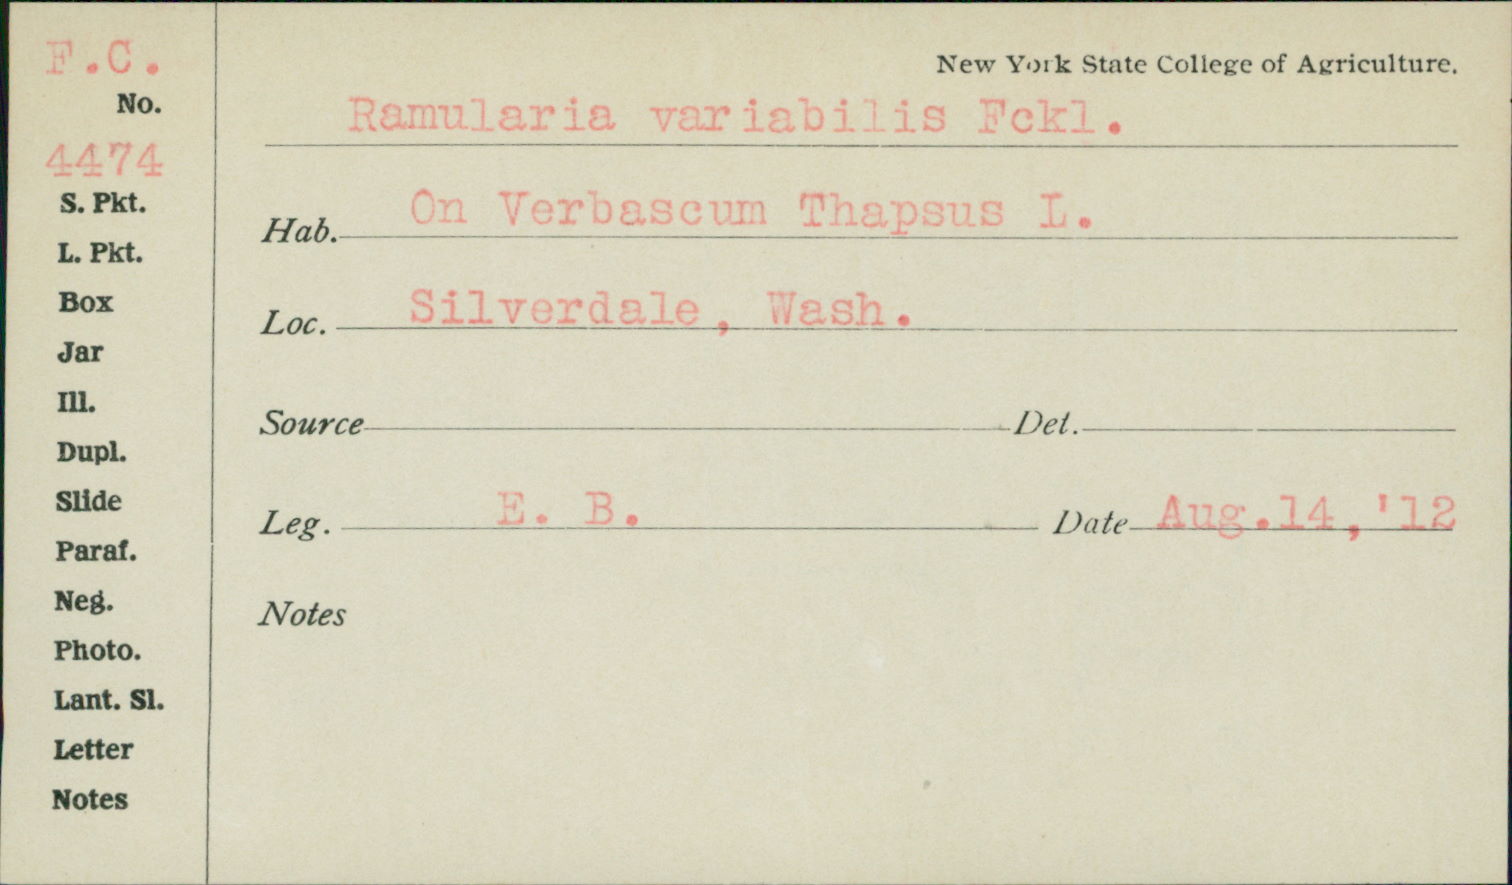 F.C.
No.
4474
S. Pkt.
L. Pkt.
Box
Jar
Ill.
Dupl.
Slide
Paraf.
Neg.
Photo.
Lant. Sl.
Letter
Notes
New York State College of Agriculture.
Ramularia variabilis Fckl.
Hab. On Verbascum Thapsus L.
Loc. Silverdale, Wash.
Source Det.
Leg. E. B. Date Aug.14,'12
Notes